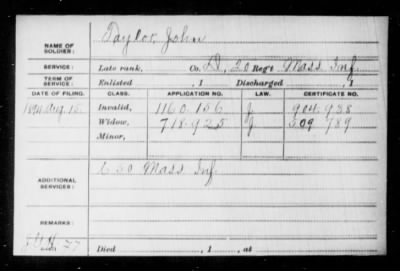 NAME OF SOLDIER: Taylor, John
SERVICE: Late rank, Co. D, 20 Reg't Mass Inf.
TERM OF SERVICE: Enlisted , 1 Discharged , 1
DATE OF FILING. CLASS. APPLICATION NO. LAW. CERTIFICATE NO.
1894 Aug. 15. Invalid, 1160.156 J 904.938
Widow, 718.925 J 509.789
Minor,
ADDITIONAL SERVICES: 50 Mass Inf.
REMARKS:
Died , 1 , at